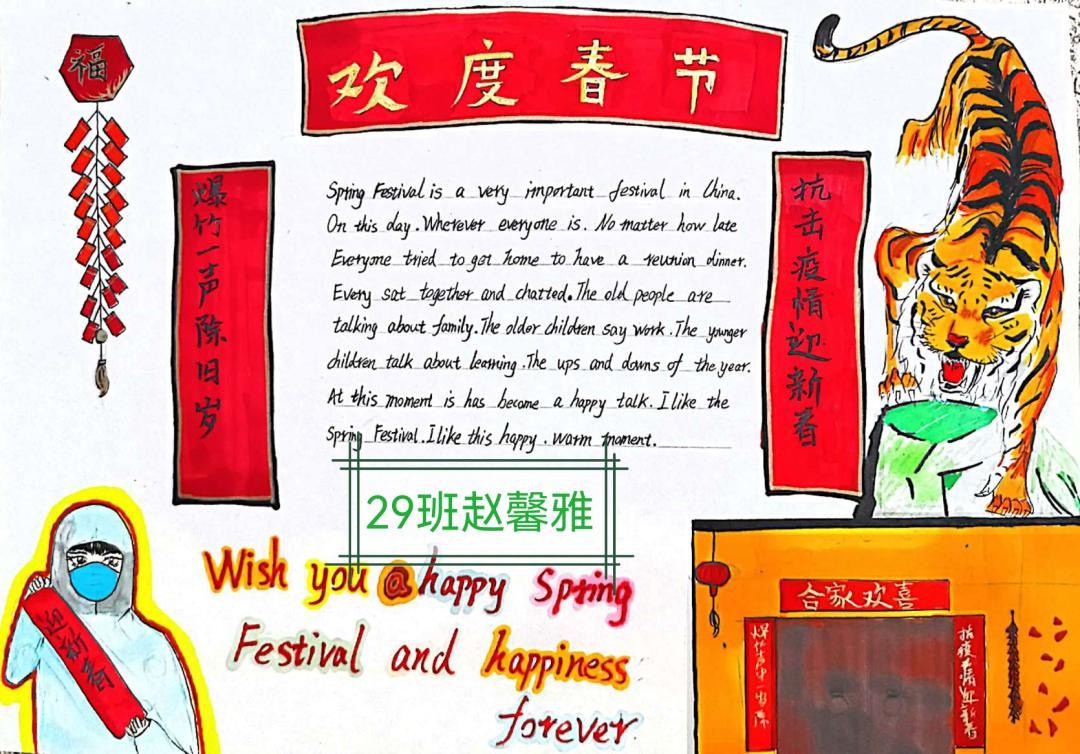 福
欢度春节
爆竹一声除旧岁
Spring Festival is a very important festival in China.
On this day. Wherever everyone is. No matter how late
Everyone tried to get home to have a reunion dinner.
Every sat together and chatted. The old people are
talking about family. The older children say work. The younger
children talk about learning. The ups and downs of the year.
At this moment is has become a happy talk. I like the
Spring Festival. I like this happy. warm moment.
抗击疫情迎新春
29班赵馨雅
Wish you a happy Spring
Festival and happiness
forever
迎新春
合家欢喜
抗疫情迎新春